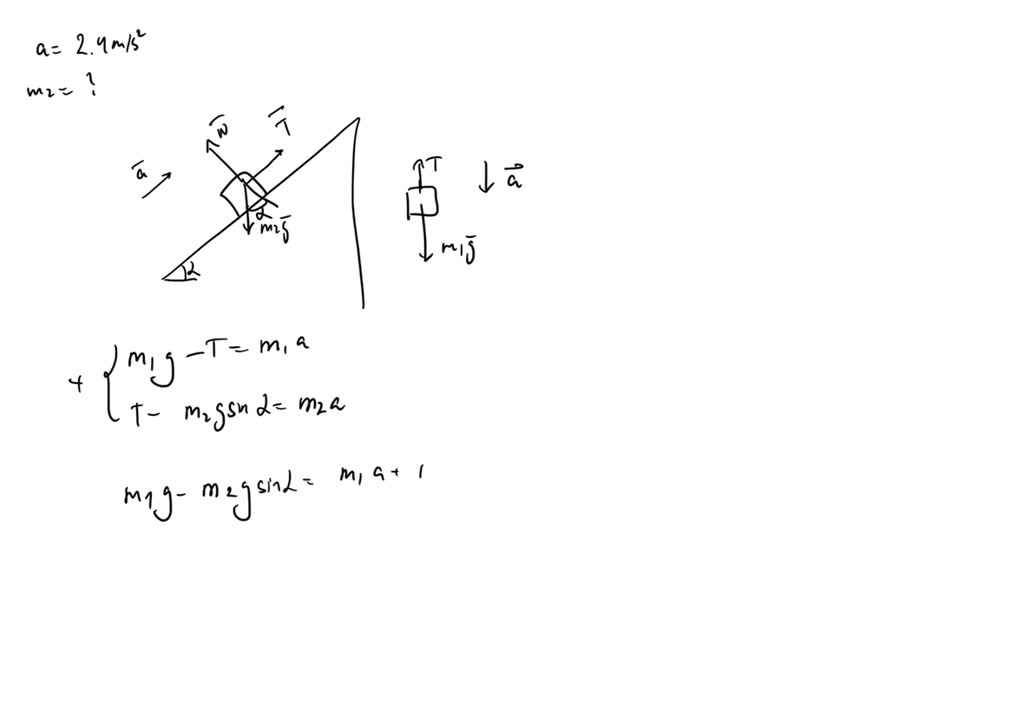 a = 2.4 m/s²
m₂ = ?
N̄ T̄
ā
T
a⃗
α
m₂ḡ
m₁ḡ
α
+ { m₁g - T = m₁a
T - m₂gsnα = m₂a
m₁g - m₂gsinα = m₁a +